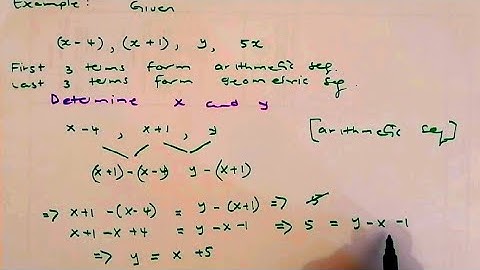 Example: Given
(x-4), (x+1), y, 5x
First 3 terms form arithmetic seq.
Last 3 terms form geometric seq.
Determine x and y
x-4 , x+1 , y [arithmetic seq]
(x+1)-(x-4) y-(x+1)
=> x+1 -(x-4) = y-(x+1) =>
x+1-x+4 = y-x-1 => 5 = y-x-1
=> y = x +5